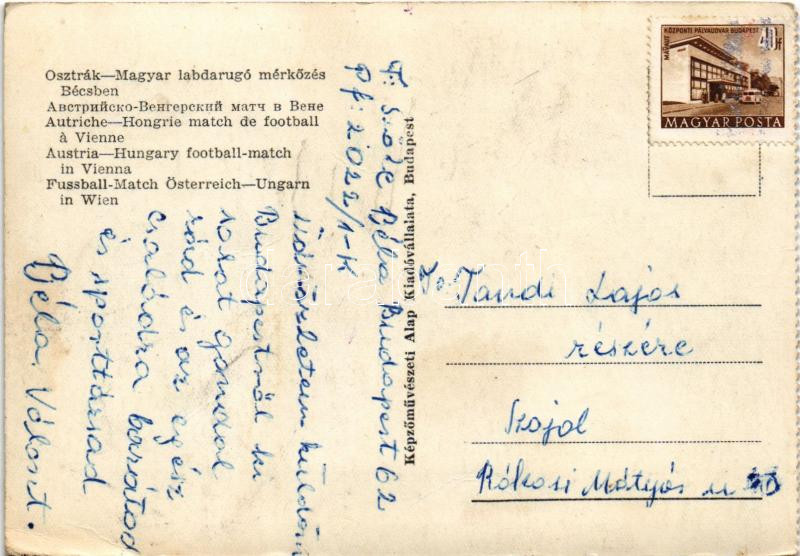 Osztrák—Magyar labdarugó mérkőzés
Bécsben
Австрийско-Венгерский матч в Вене
Autriche—Hongrie match de football
à Vienne
Austria—Hungary football-match
in Vienna
Fussball-Match Österreich—Ungarn
in Wien
F: Béla Budapest 62
Pf: 2022/1-K
üdvözletem küldöm
Budapestről ki
sokat gondol
rád és az egész
családra barátod
és sporttársad
Béla. Választ.
Képzőművészeti Alap Kiadóvállalata, Budapest
MÁVAUT KÖZPONTI PÁLYAUDVAR BUDAPEST
40f
MAGYAR POSTA
Tandi Lajos
részére
Szajol
Rákosi Mátyás u